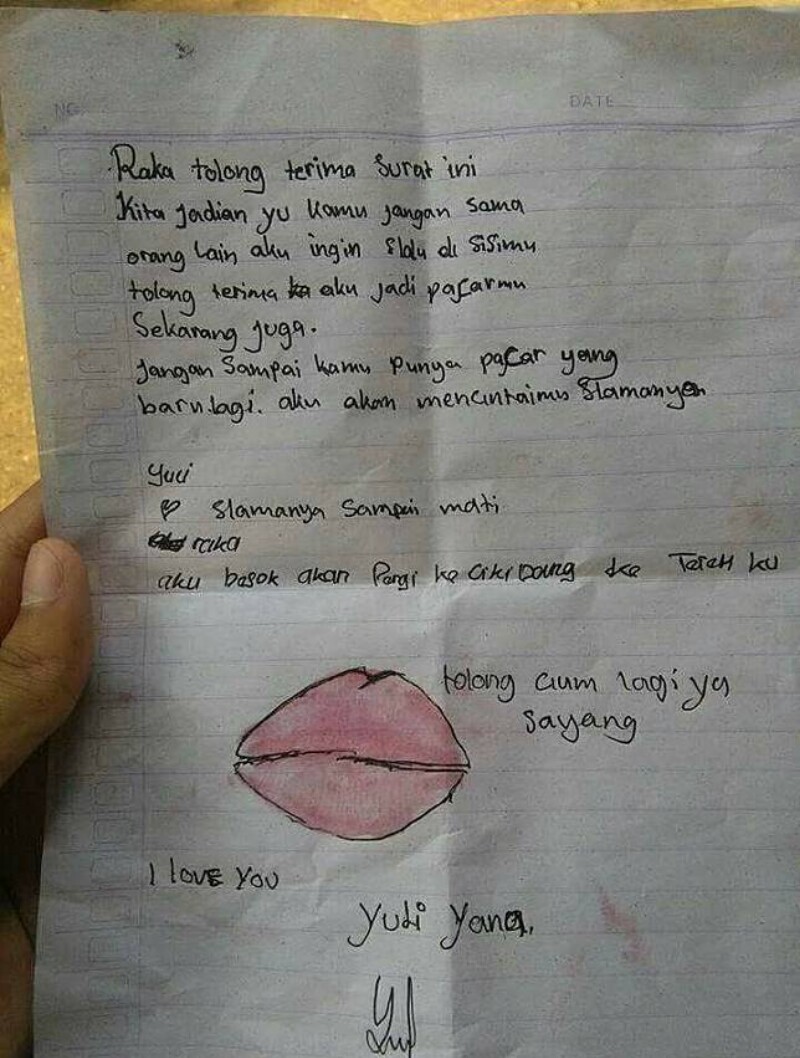 NO.
DATE
Raka tolong terima Surat ini
Kita Jadian yu kamu jangan sama
orang lain aku ingin Slalu di sisimu
tolong terima aku jadi pacarmu
Sekarang juga.
jangan Sampai kamu Punya pacar yang
baru lagi. aku akan mencintaimu Slamanya
Yuli
Slamanya Sampai mati
raka
aku besok akan Pergi ke cikidang ke
tolong cium lagi ya
Sayang
I love you
Yuli Yana,